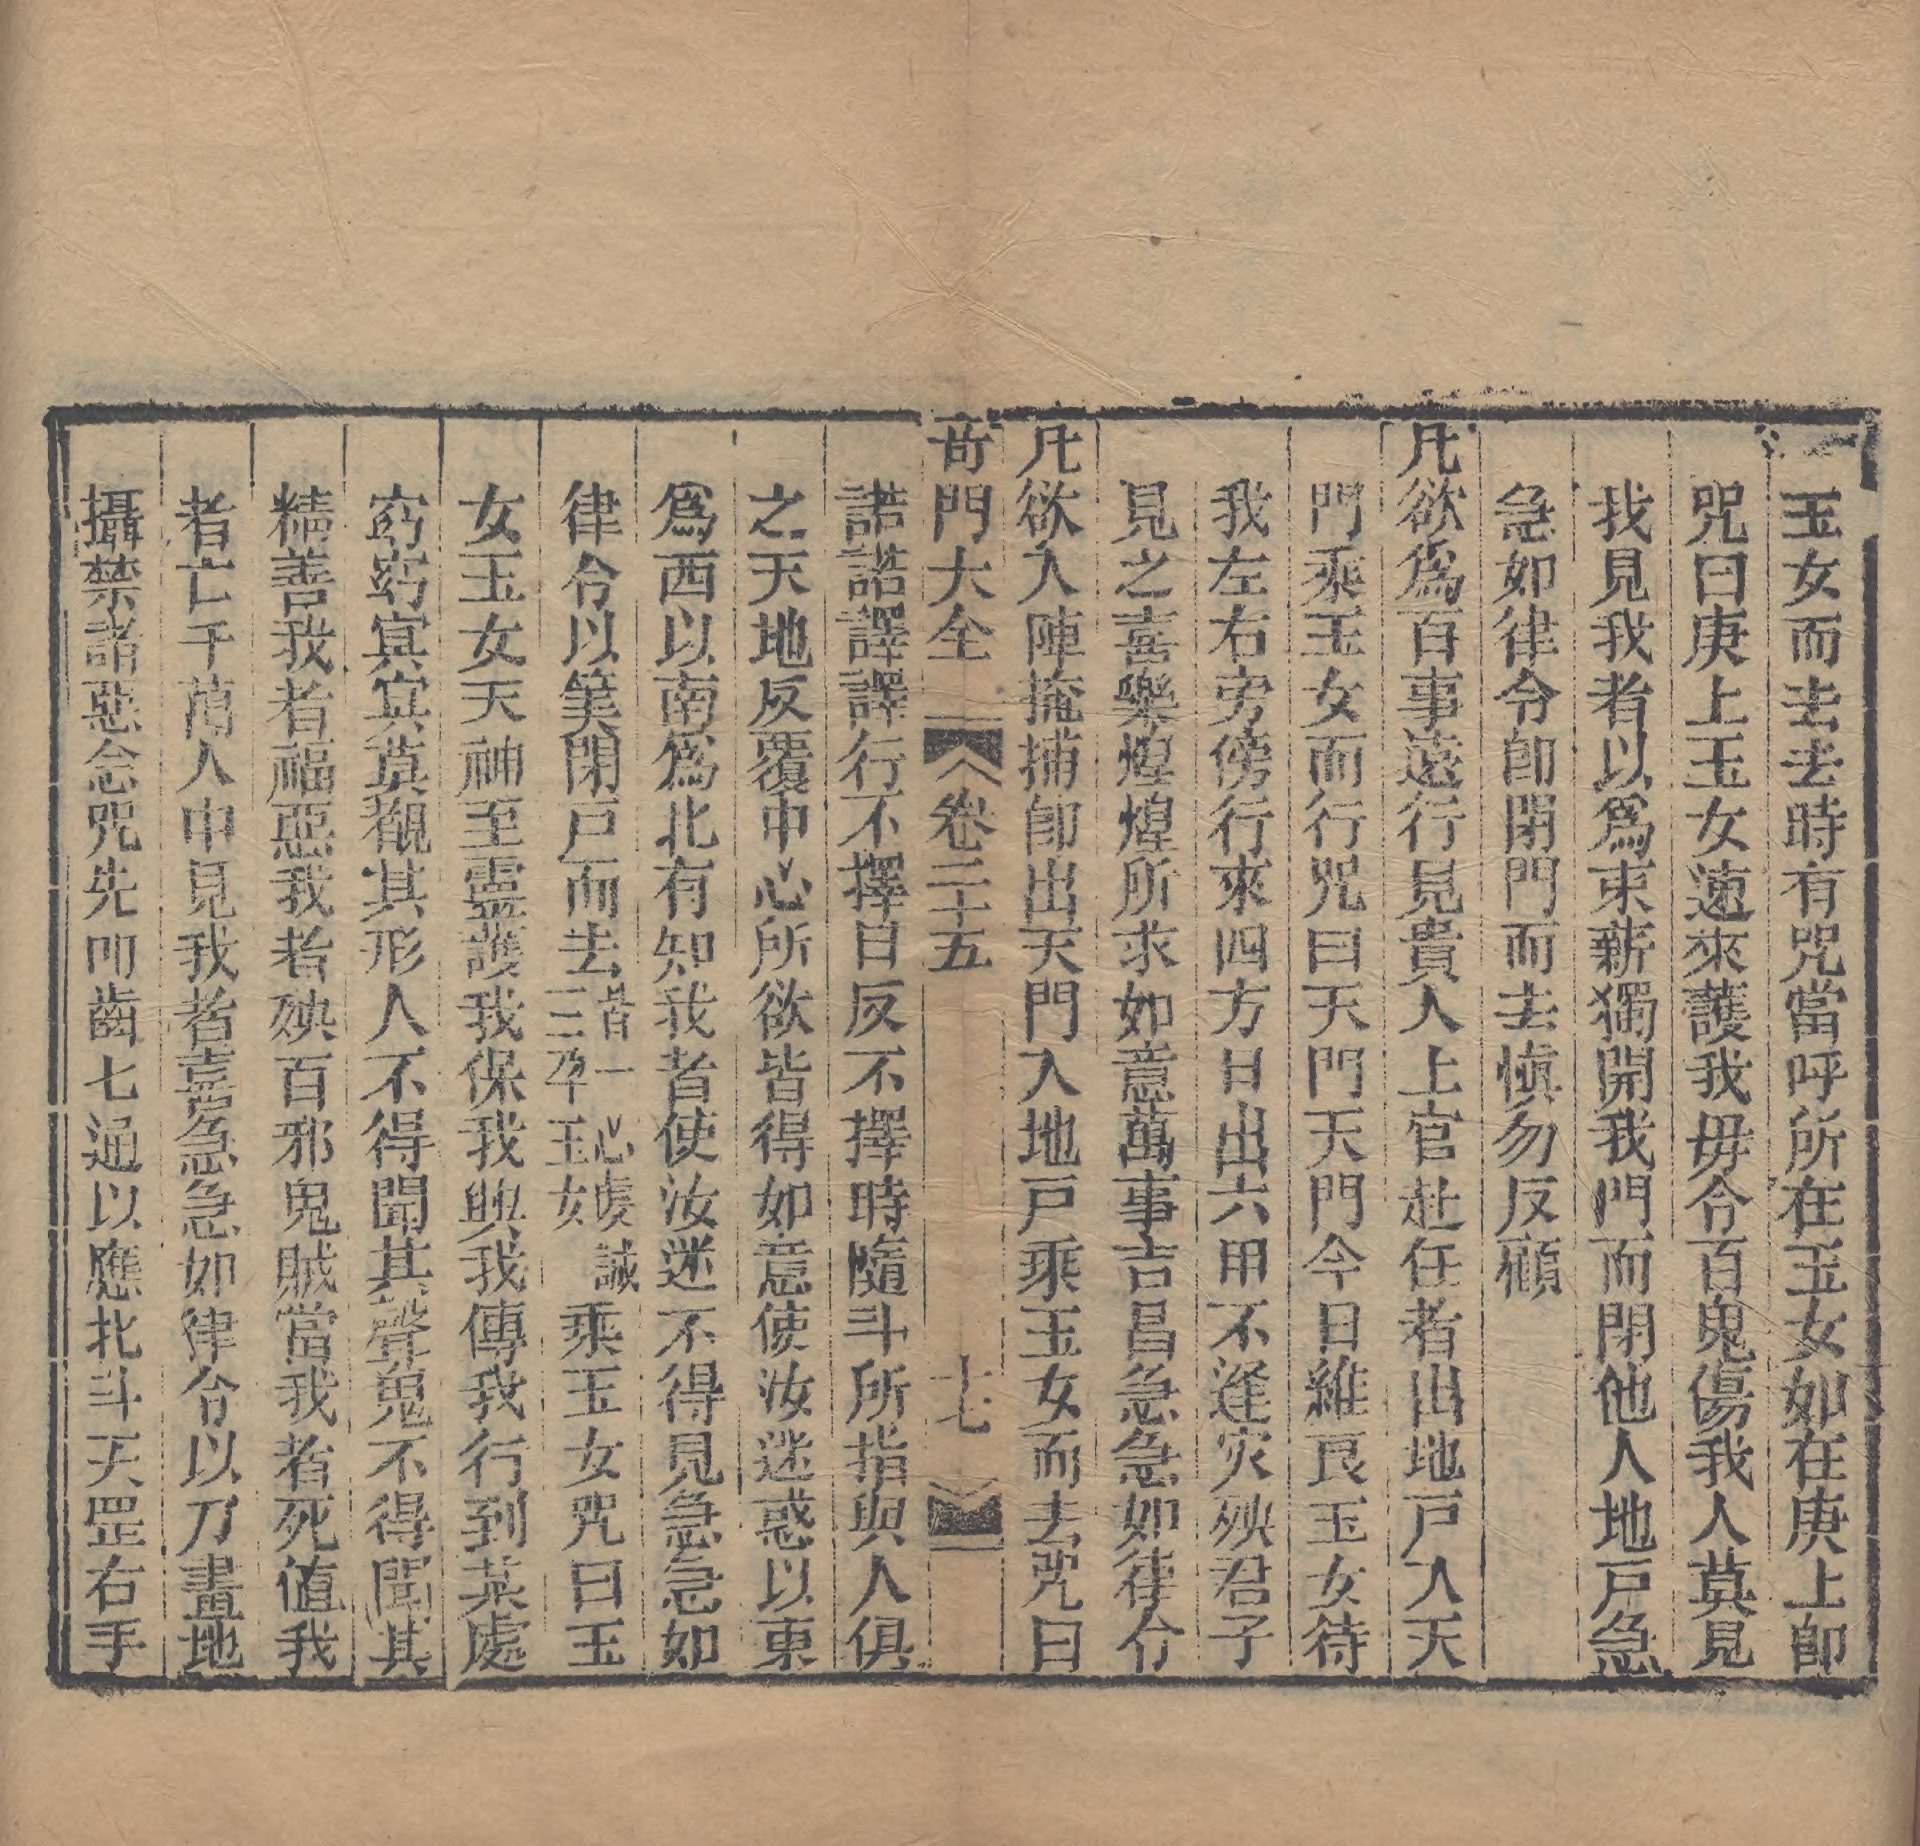 玉女而去去時有咒當呼所在玉女如在庚上卽
咒曰庚上玉女速來護我毋令百鬼傷我人莫見
我見我者以爲束薪獨開我門而閉他人地戸急
急如律令卽閉門而去愼勿反顧
凡欲爲百事遠行見貴人上官赴任者出地戸入天
門乘玉女而行咒曰天門天門今日維良玉女待
我左右旁傍行來四方日出六甲不逢灾殃君子
見之喜樂煌煌所求如意萬事吉昌急急如律令
凡欲入陣掩捕卽出天門入地戸乘玉女而去咒曰
奇門大全 卷二十五 十七
諾諾譯譯行不擇日反不擇時隨斗所指與人俱
之天地反覆中心所欲皆得如意使汝迷惑以東
爲西以南爲北有知我者使汝迷不得見急急如
律令以筆閉戸而去皆一心虔誠三呼玉女乘玉女咒曰玉
女玉女天神至靈護我保我與我傳我行到某處
窈窈冥冥莫覩其形人不得聞其聲鬼不得聞其
精善我者福惡我者殃百邪鬼賊當我者死値我
者亡千萬人中見我者喜急急如律令以刀畫地
攝禁諸惡念咒先叩齒七通以應北斗天罡右手